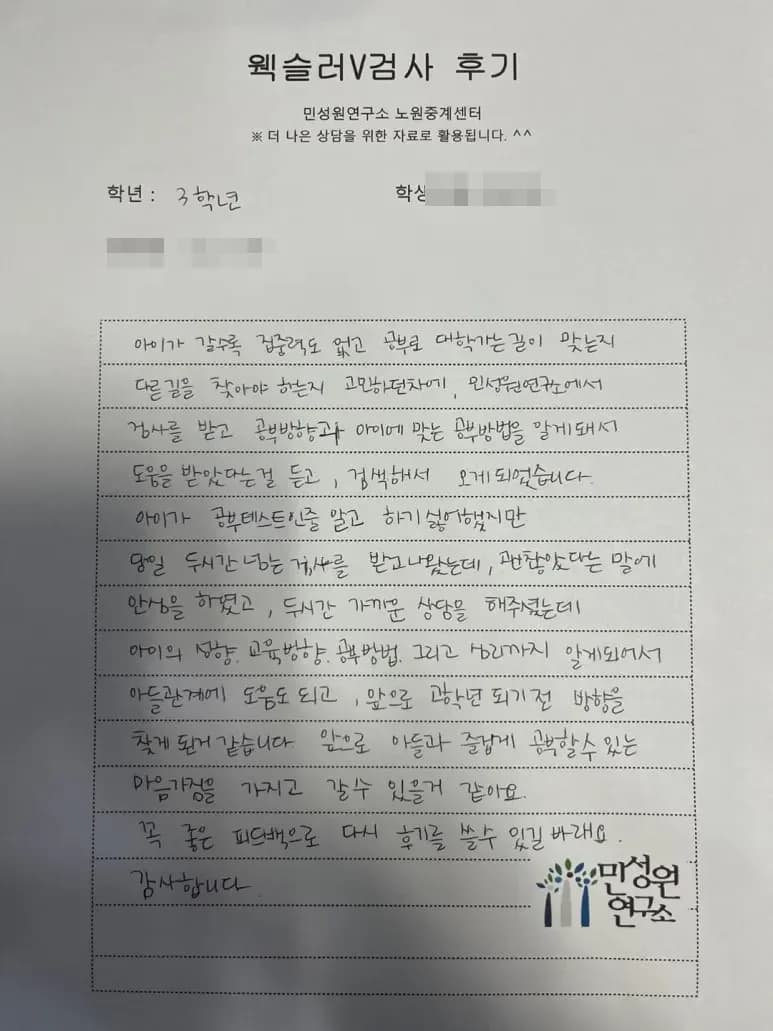 웩슬러V검사 후기
민성원연구소 노원중계센터
※ 더 나은 상담을 위한 자료로 활용됩니다. ^^
학년 : 3학년 학생
아이가 갈수록 집중력도 없고 공부로 대학가는길이 맞는지
다른길을 찾아야 하는지 고민하던차에, 민성원연구소에서
검사를 받고 공부방향과 아이에 맞는 공부방법을 알게돼서
도움을 받았다는걸 듣고, 검색해서 오게되었습니다.
아이가 공부테스트인줄 알고 하기싫어했지만
당일 두시간 넘는 검사를 받고나왔는데, 괜찮았다는 말에
안심을 하였고, 두시간 가까운 상담을 해주셨는데
아이의 성향. 교육방향. 공부방법. 그리고 심리까지 알게되어서
아들관계에 도움도 되고, 앞으로 고학년 되기전 방향을
찾게 된거 같습니다 앞으로 아들과 즐겁게 공부할수 있는
마음가짐을 가지고 갈수 있을거 같아요.
꼭 좋은 피드백으로 다시 후기를 쓸수 있길 바래요.
감사합니다.
민성원
연구소